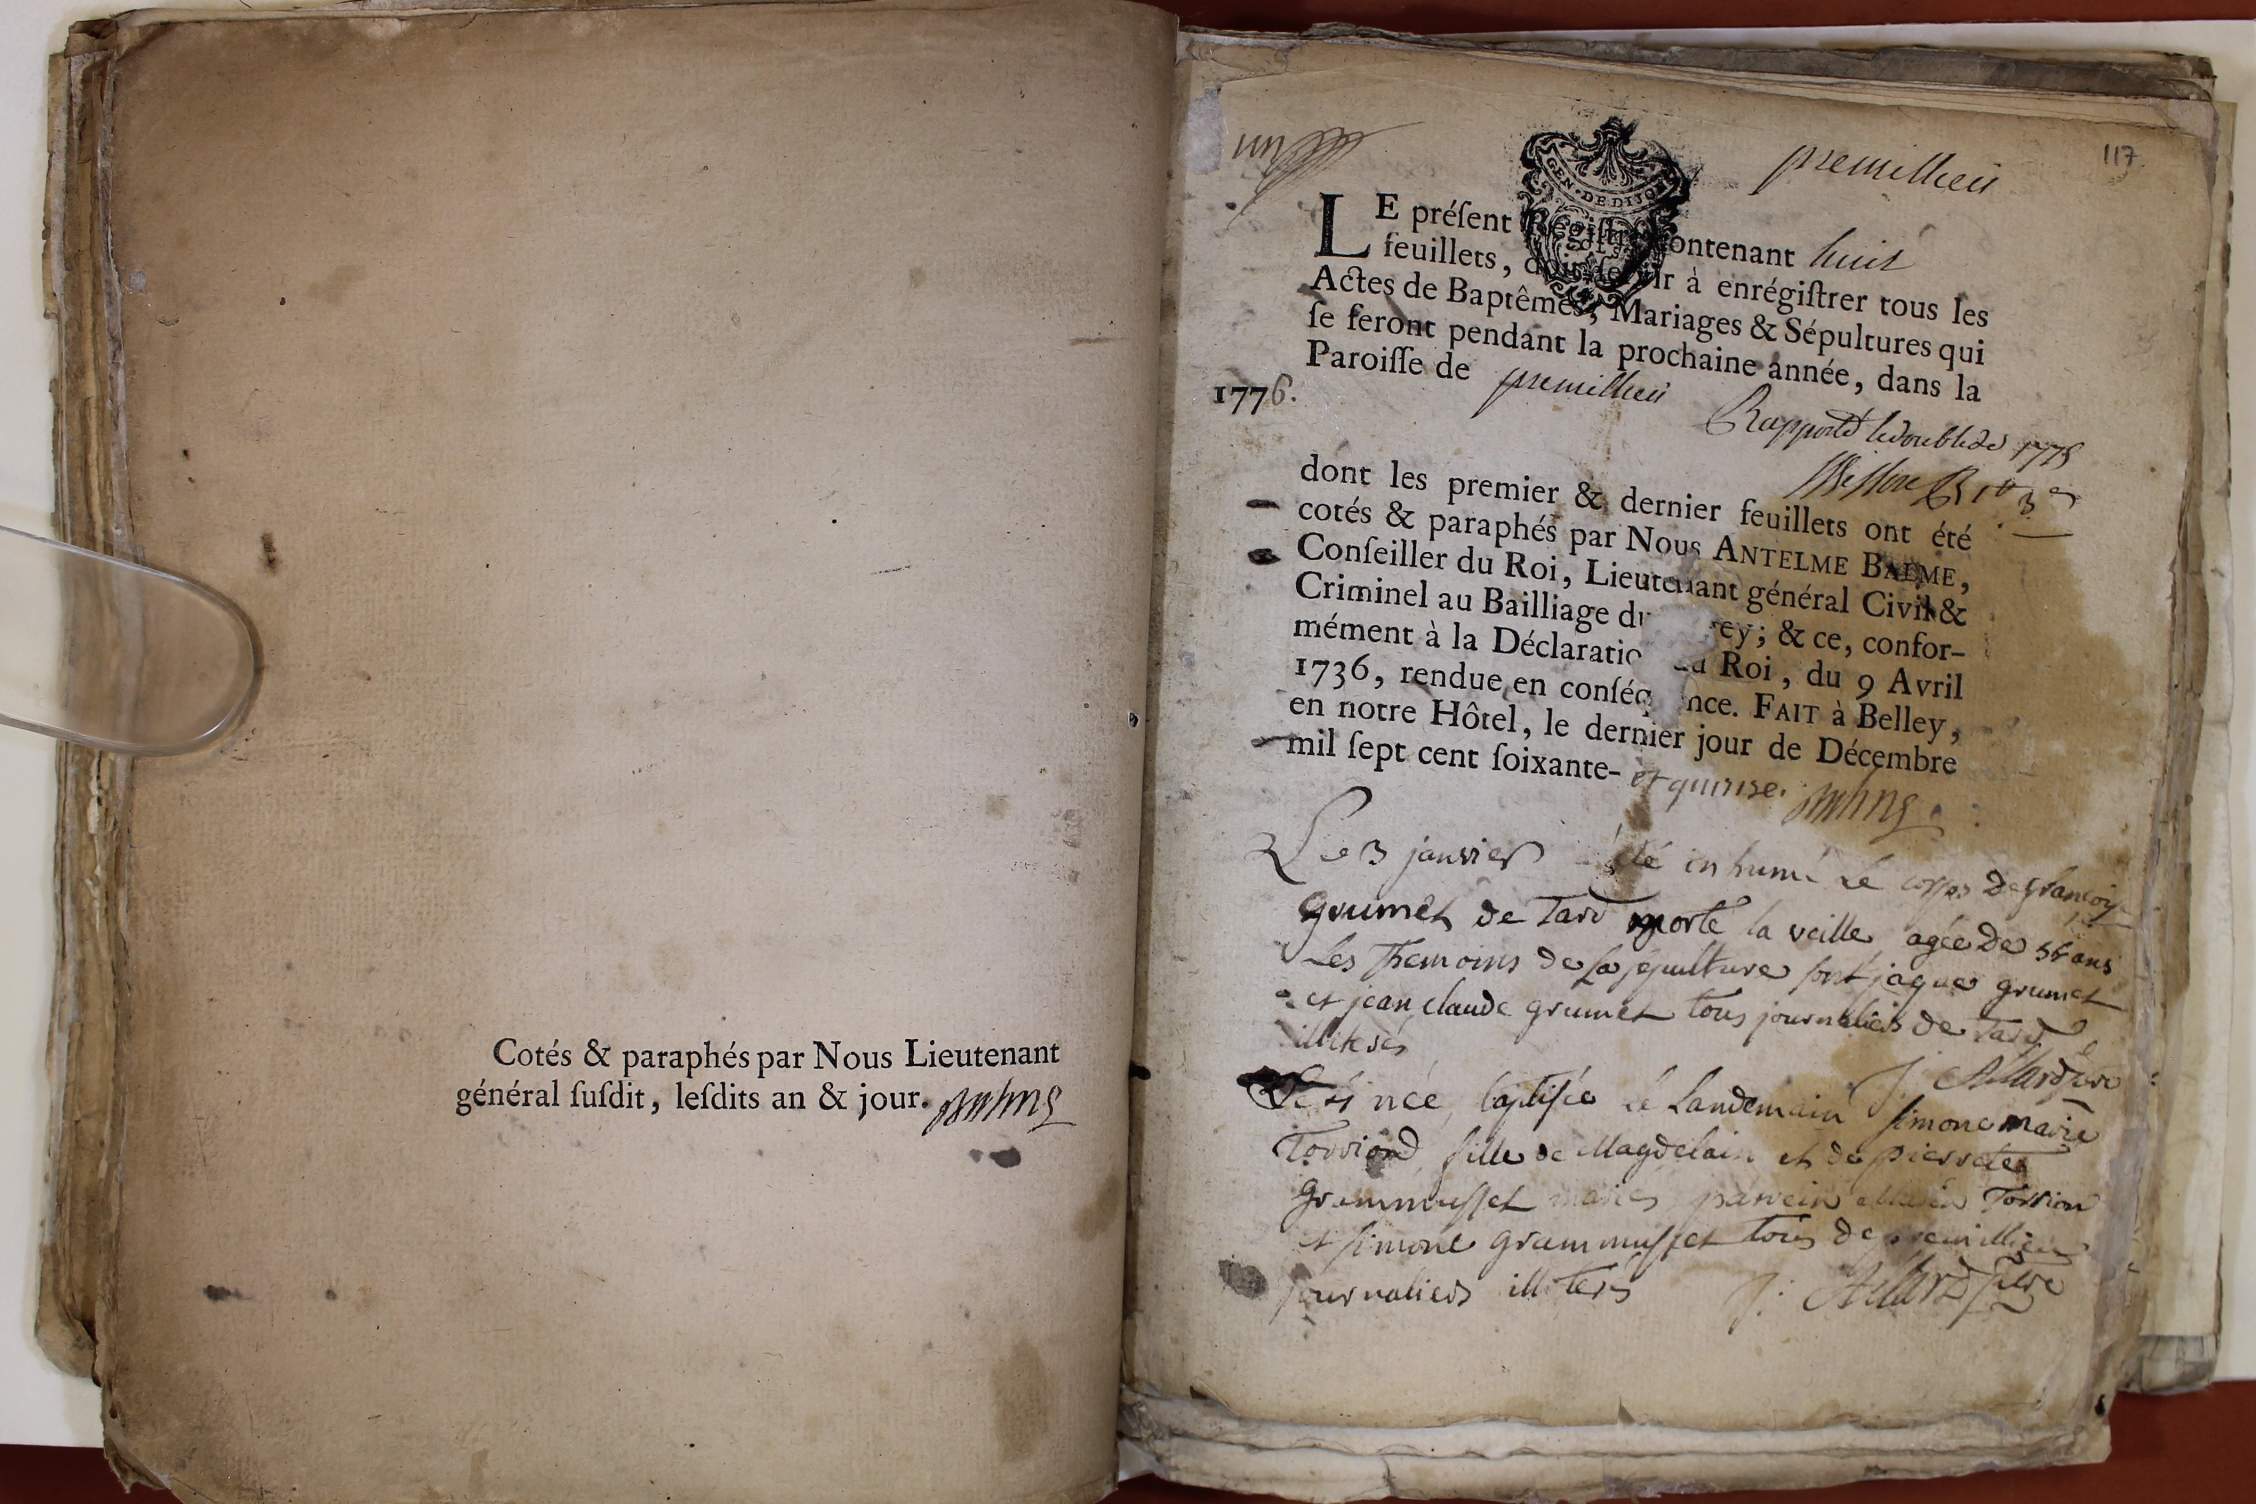 Cotés & paraphés par Nous Lieutenant
général ſuſdit, leſdits an & jour.
un
premillieu
117
GEN · DE DIJON
LE préſent Régiſtre contenant huit
feuillets, doit ſervir à enrégiſtrer tous les
Actes de Baptêmes, Mariages & Sépultures qui
ſe feront pendant la prochaine année, dans la
Paroiſſe de premillieu
1776.
Rapporté le double de 1775
dont les premier & dernier feuillets ont été
cotés & paraphés par Nous ANTELME BALME,
Conſeiller du Roi, Lieutenant général Civil &
Criminel au Bailliage du Bugey; & ce, confor-
mément à la Déclaration du Roi, du 9 Avril
1736, rendue en conſéquence. FAIT à Belley,
en notre Hôtel, le dernier jour de Décembre
mil ſept cent ſoixante- et quinse.
Le 3 janvier été inhumé le corps de françoise
grumet de Tard morte la veille agée de ans
Les Themoins de la sepulture sont jaques grumet
et jean claude grumet tous journaliers de Tard
illiterés
J: Allard
Le née baptisée le Landemain simone marie
Torriond fille de Magdelain et de pierrete
grammusset mariés parrein Torrion
et simone grammusset tous de premillieu
journaliers illiterés J: Allard